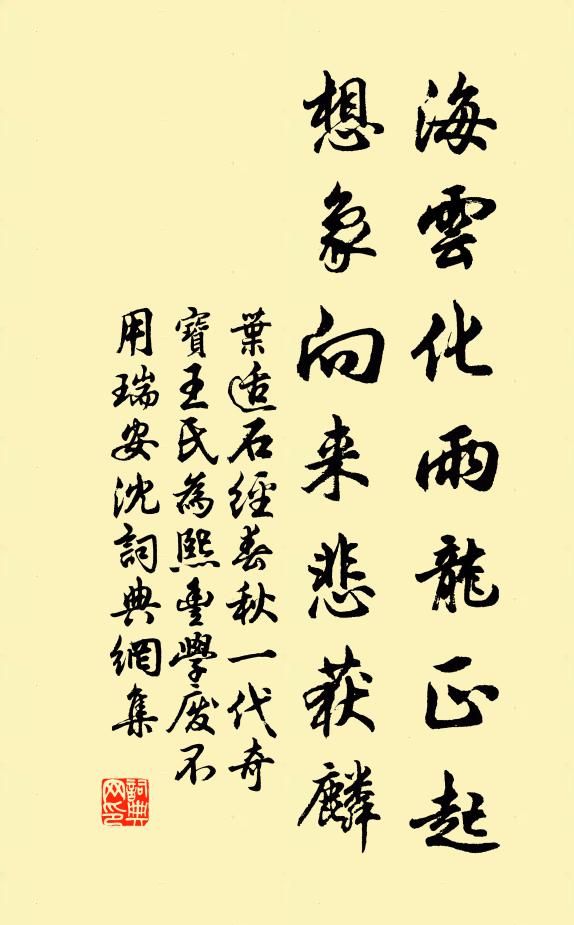 海雲化雨龍正起
想象向来悲获麟
葉适石經春秋一代奇
寶王氏為熙豊學废不
用瑞安沈詞典網集
詞典網印